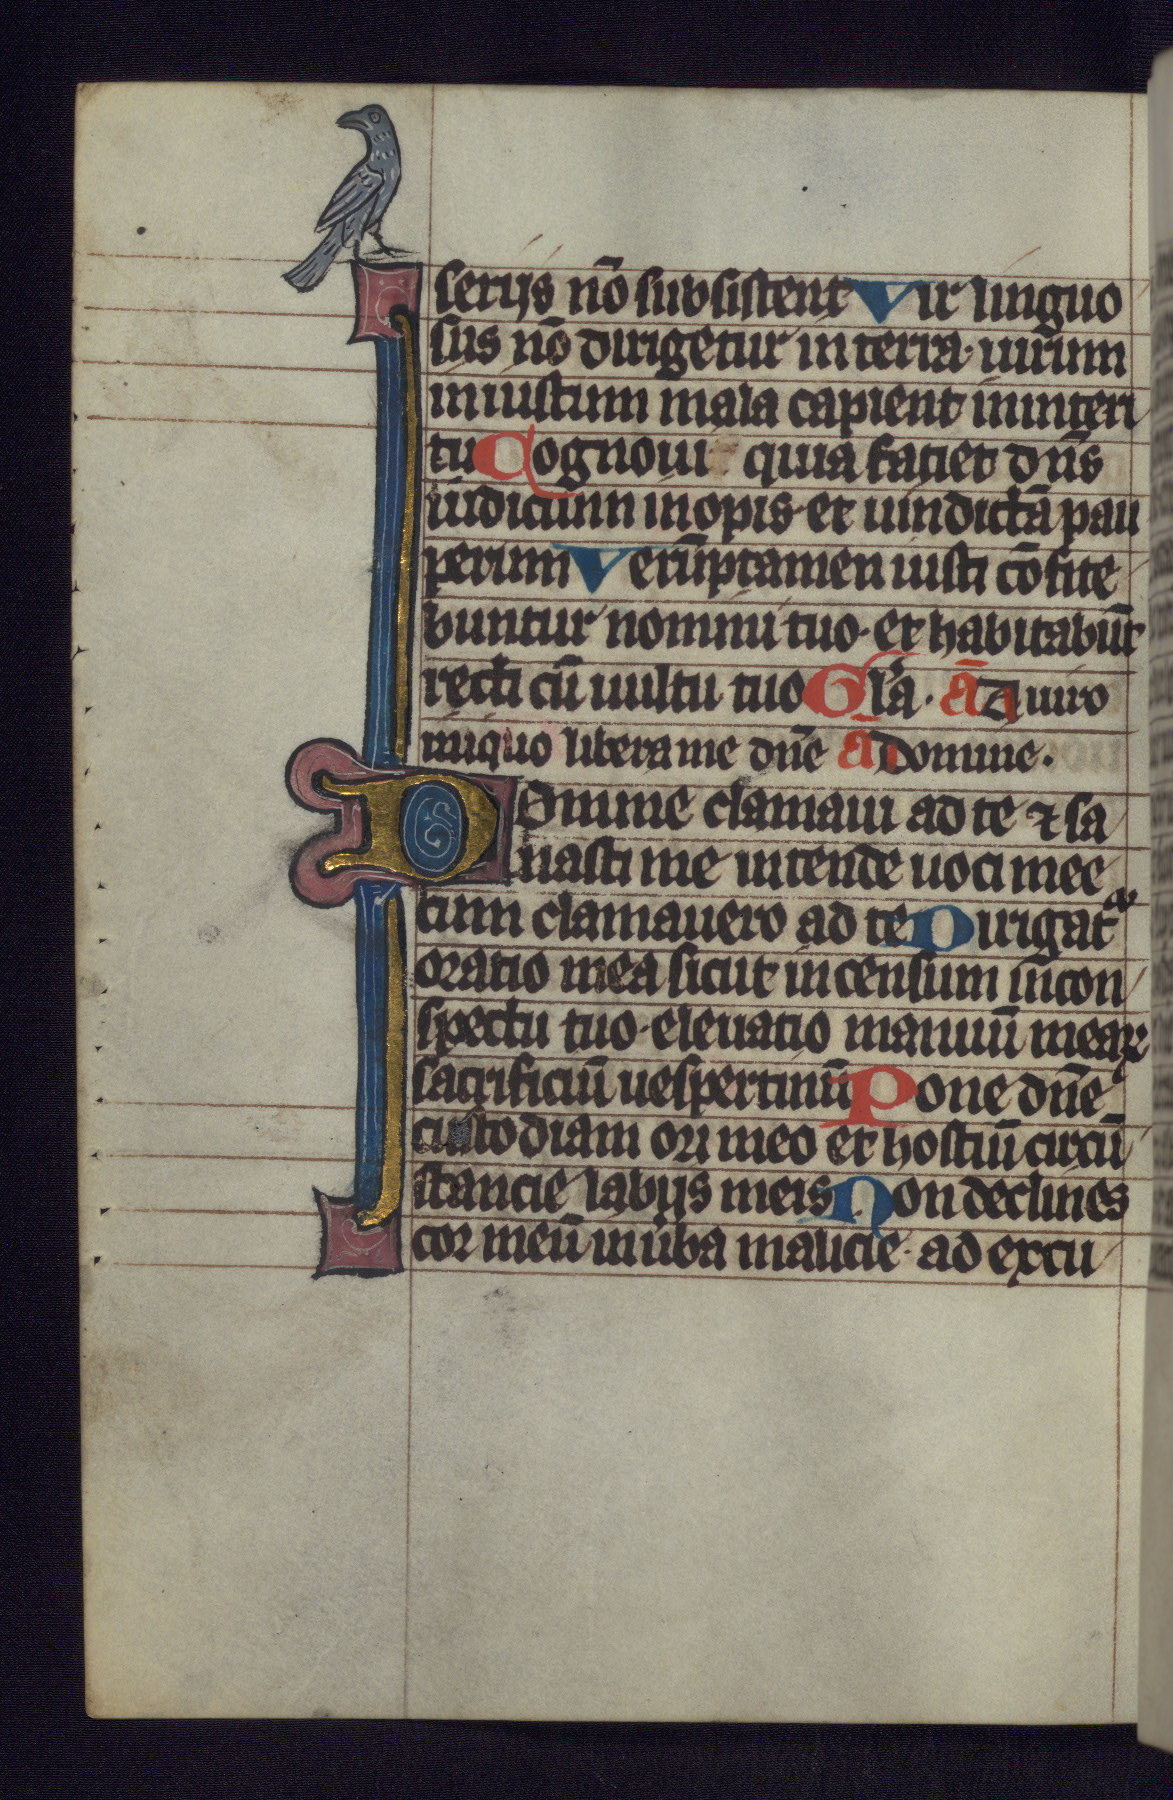 serijs nō subsistent Vir linguo
sus nō dirigetur in terra· uirum
iniustum mala capient in interi
tu Cognoui quia faciet dn̄s
iudicium inopis· et uindictā pau
perum Verūptamen iusti cōfite
buntur nomini tuo· et habitabūt
recti cū uultu tuo Gl̄a· ā A uiro
iniquo libera me dn̄e ā Domine·
Domine clamaui ad te ⁊ exa
uasti me intende uoci mee
cum clamauero ad te Dirigat᷑
oratio mea sicut incensum in con
spectu tuo· eleuatio manuū meaꝝ
sacrificiū uespertinū Pone dn̄e
custodiam ori meo et hostiū circū
stancie labijs meis Non declines
cor meū in ūba malicie· ad excu